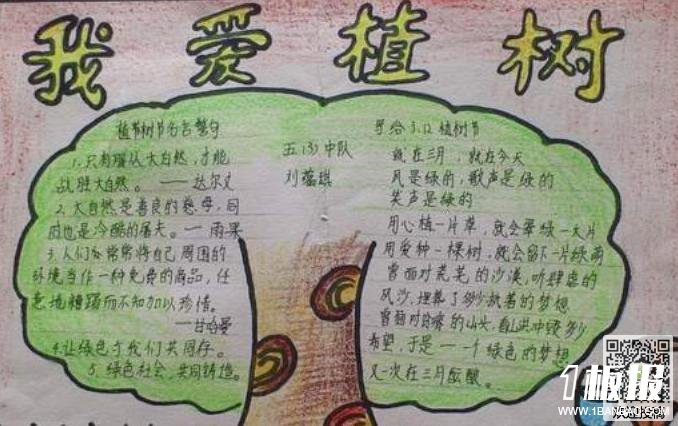 我爱植树
植树节名言警句
1.只有顺从大自然,才能
战胜大自然。——达尔文
2.大自然是善良的慈母,同
时也是冷酷的屠夫。—雨果
3.人们常常将自己周围的
环境当作一种免费的商品,任
意地糟蹋而不知加以珍惜。
—甘哈曼
4.让绿色与我们共同存。
5.绿色社会,共同铸造。
五(3)中队
刘蕴琪
写给3.12植树节
就在三月,就在今天
风是绿的,歌声是绿的
笑声是绿的
用心植一片草,就会翠绿一大片
用爱种一棵树,就会留下一片绿荫
曾面对茫茫的沙漠,听肆虐的
风沙,埋葬了多少执著的梦想
曾面对的山头,看山洪冲毁多少
希望,于是一个绿色的梦想
又一次在三月酝酿。
1板报
WWW.1BANBAO.COM